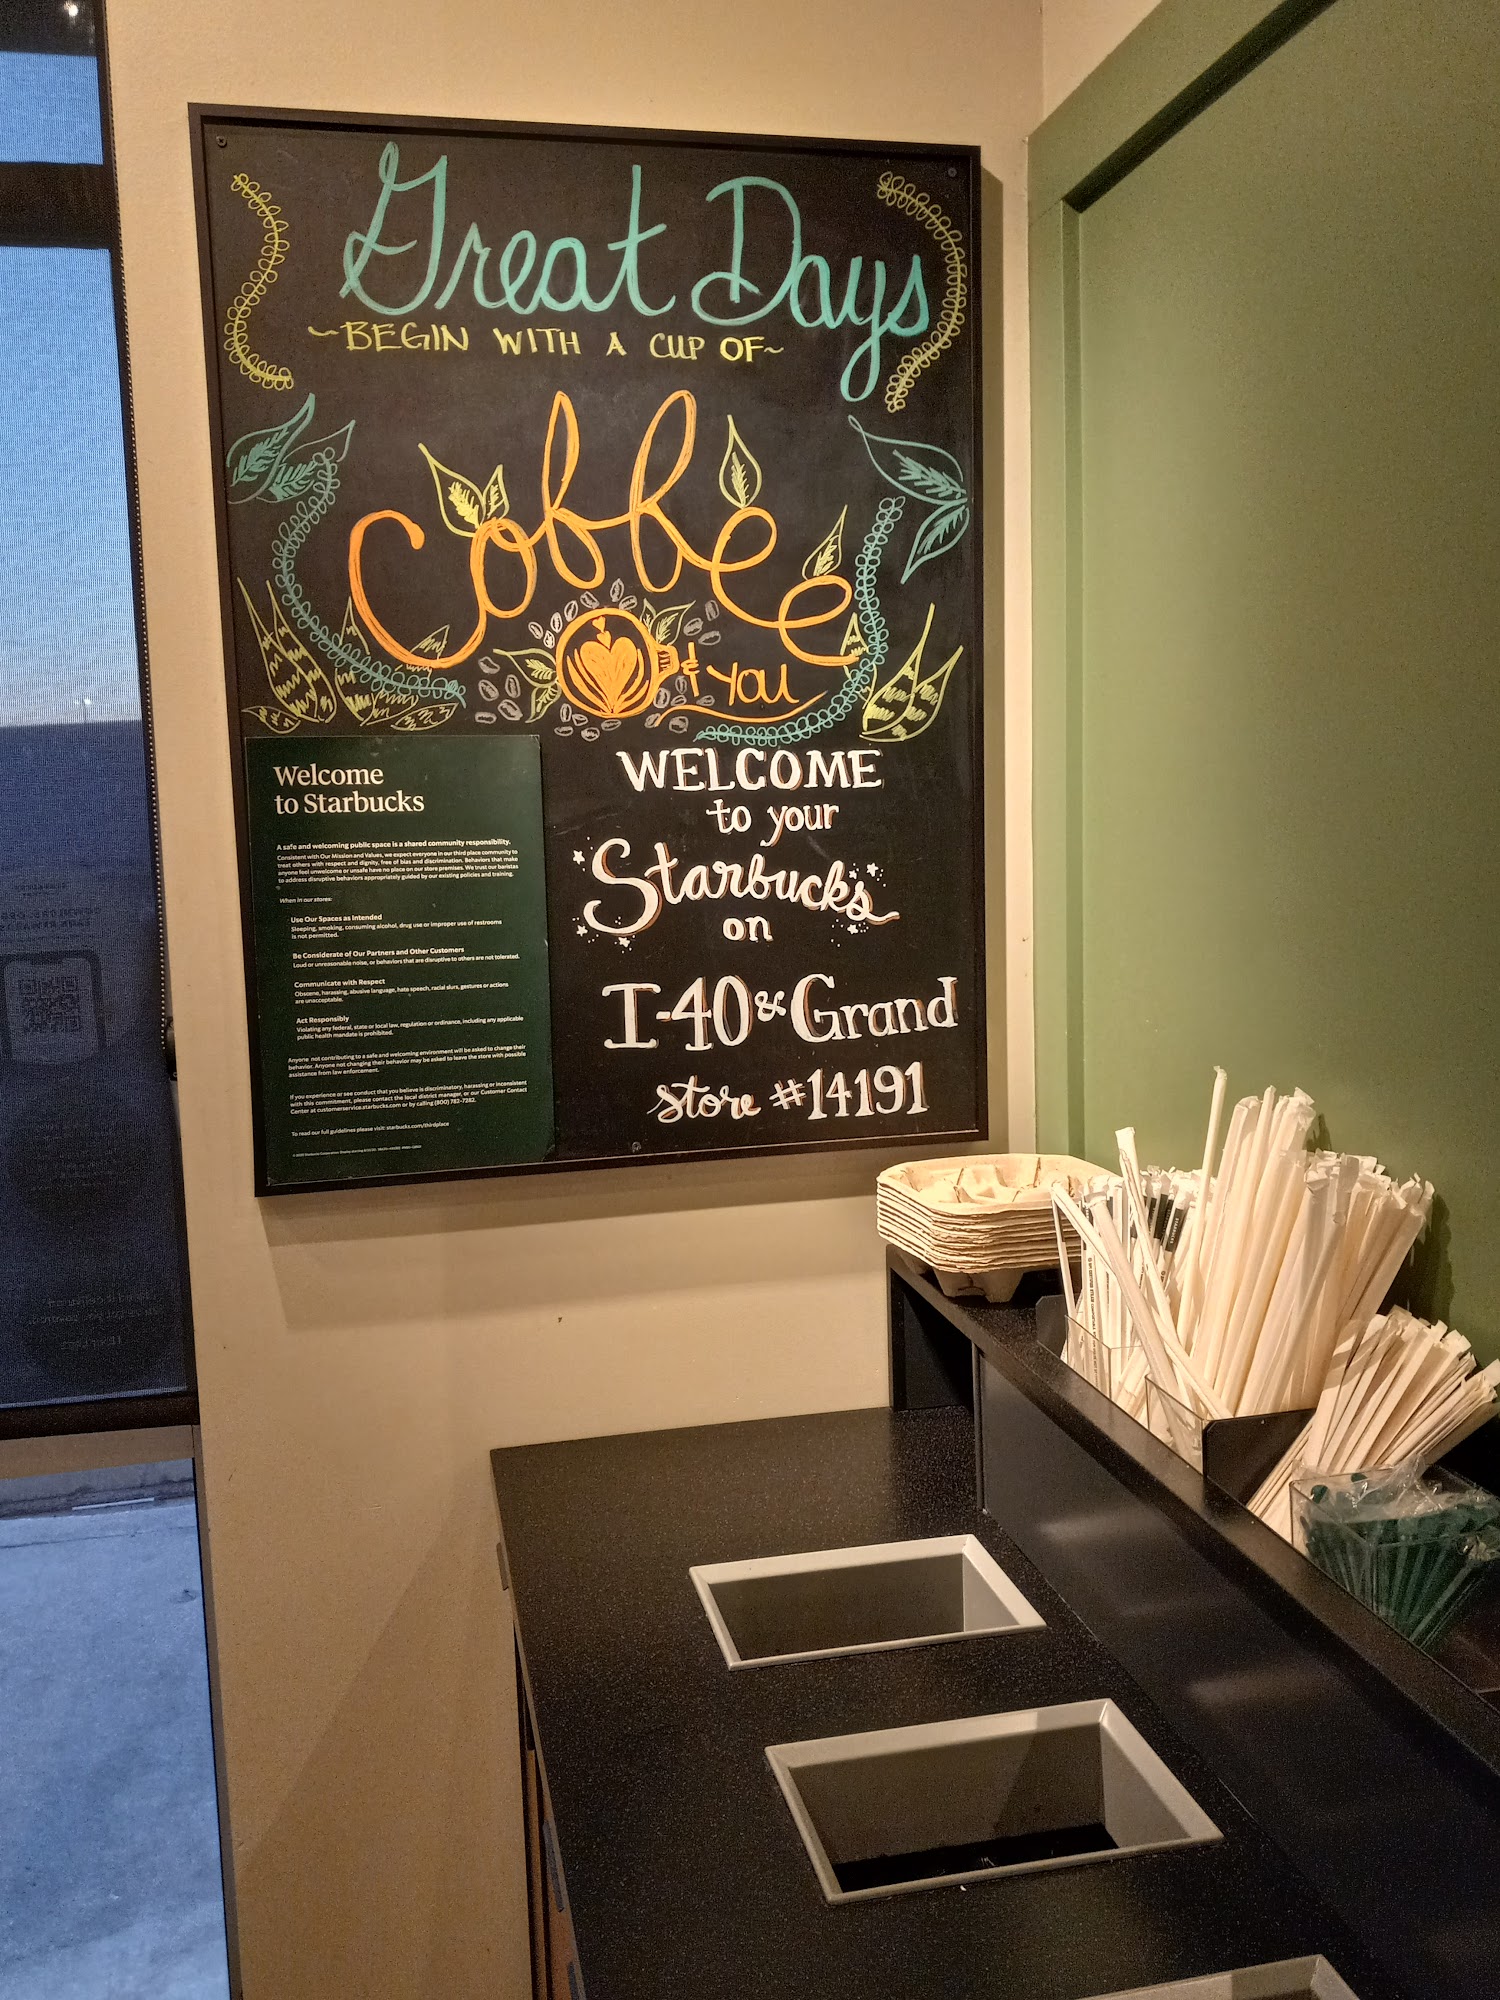 Great Days
~BEGIN WITH A CUP OF~
Coffee
& YOU
Welcome
to Starbucks
A safe and welcoming public space is a shared community responsibility.
Consistent with Our Mission and Values, we expect everyone in our third place community to
treat others with respect and dignity, free of bias and discrimination. Behaviors that make
anyone feel unwelcome or unsafe have no place on our store premises. We trust our baristas
to address disruptive behaviors appropriately guided by our existing policies and training.
When in our stores:
Use Our Spaces as Intended
Sleeping, smoking, consuming alcohol, drug use or improper use of restrooms
is not permitted.
Be Considerate of Our Partners and Other Customers
Loud or unreasonable noise, or behaviors that are disruptive to others are not tolerated.
Communicate with Respect
Obscene, harassing, abusive language, hate speech, racial slurs, gestures or actions
are unacceptable.
Act Responsibly
Violating any federal, state or local law, regulation or ordinance, including any applicable
public health mandate is prohibited.
Anyone not contributing to a safe and welcoming environment will be asked to change their
behavior. Anyone not changing their behavior may be asked to leave the store with possible
assistance from law enforcement.
If you experience or see conduct that you believe is discriminatory, harassing or inconsistent
with this commitment, please contact the local district manager, or our Customer Contact
Center at customerservice.starbucks.com or by calling (800) 782-7282.
To read our full guidelines please visit: starbucks.com/thirdplace
WELCOME
to your
Starbucks
on
I-40 & Grand
store #14191